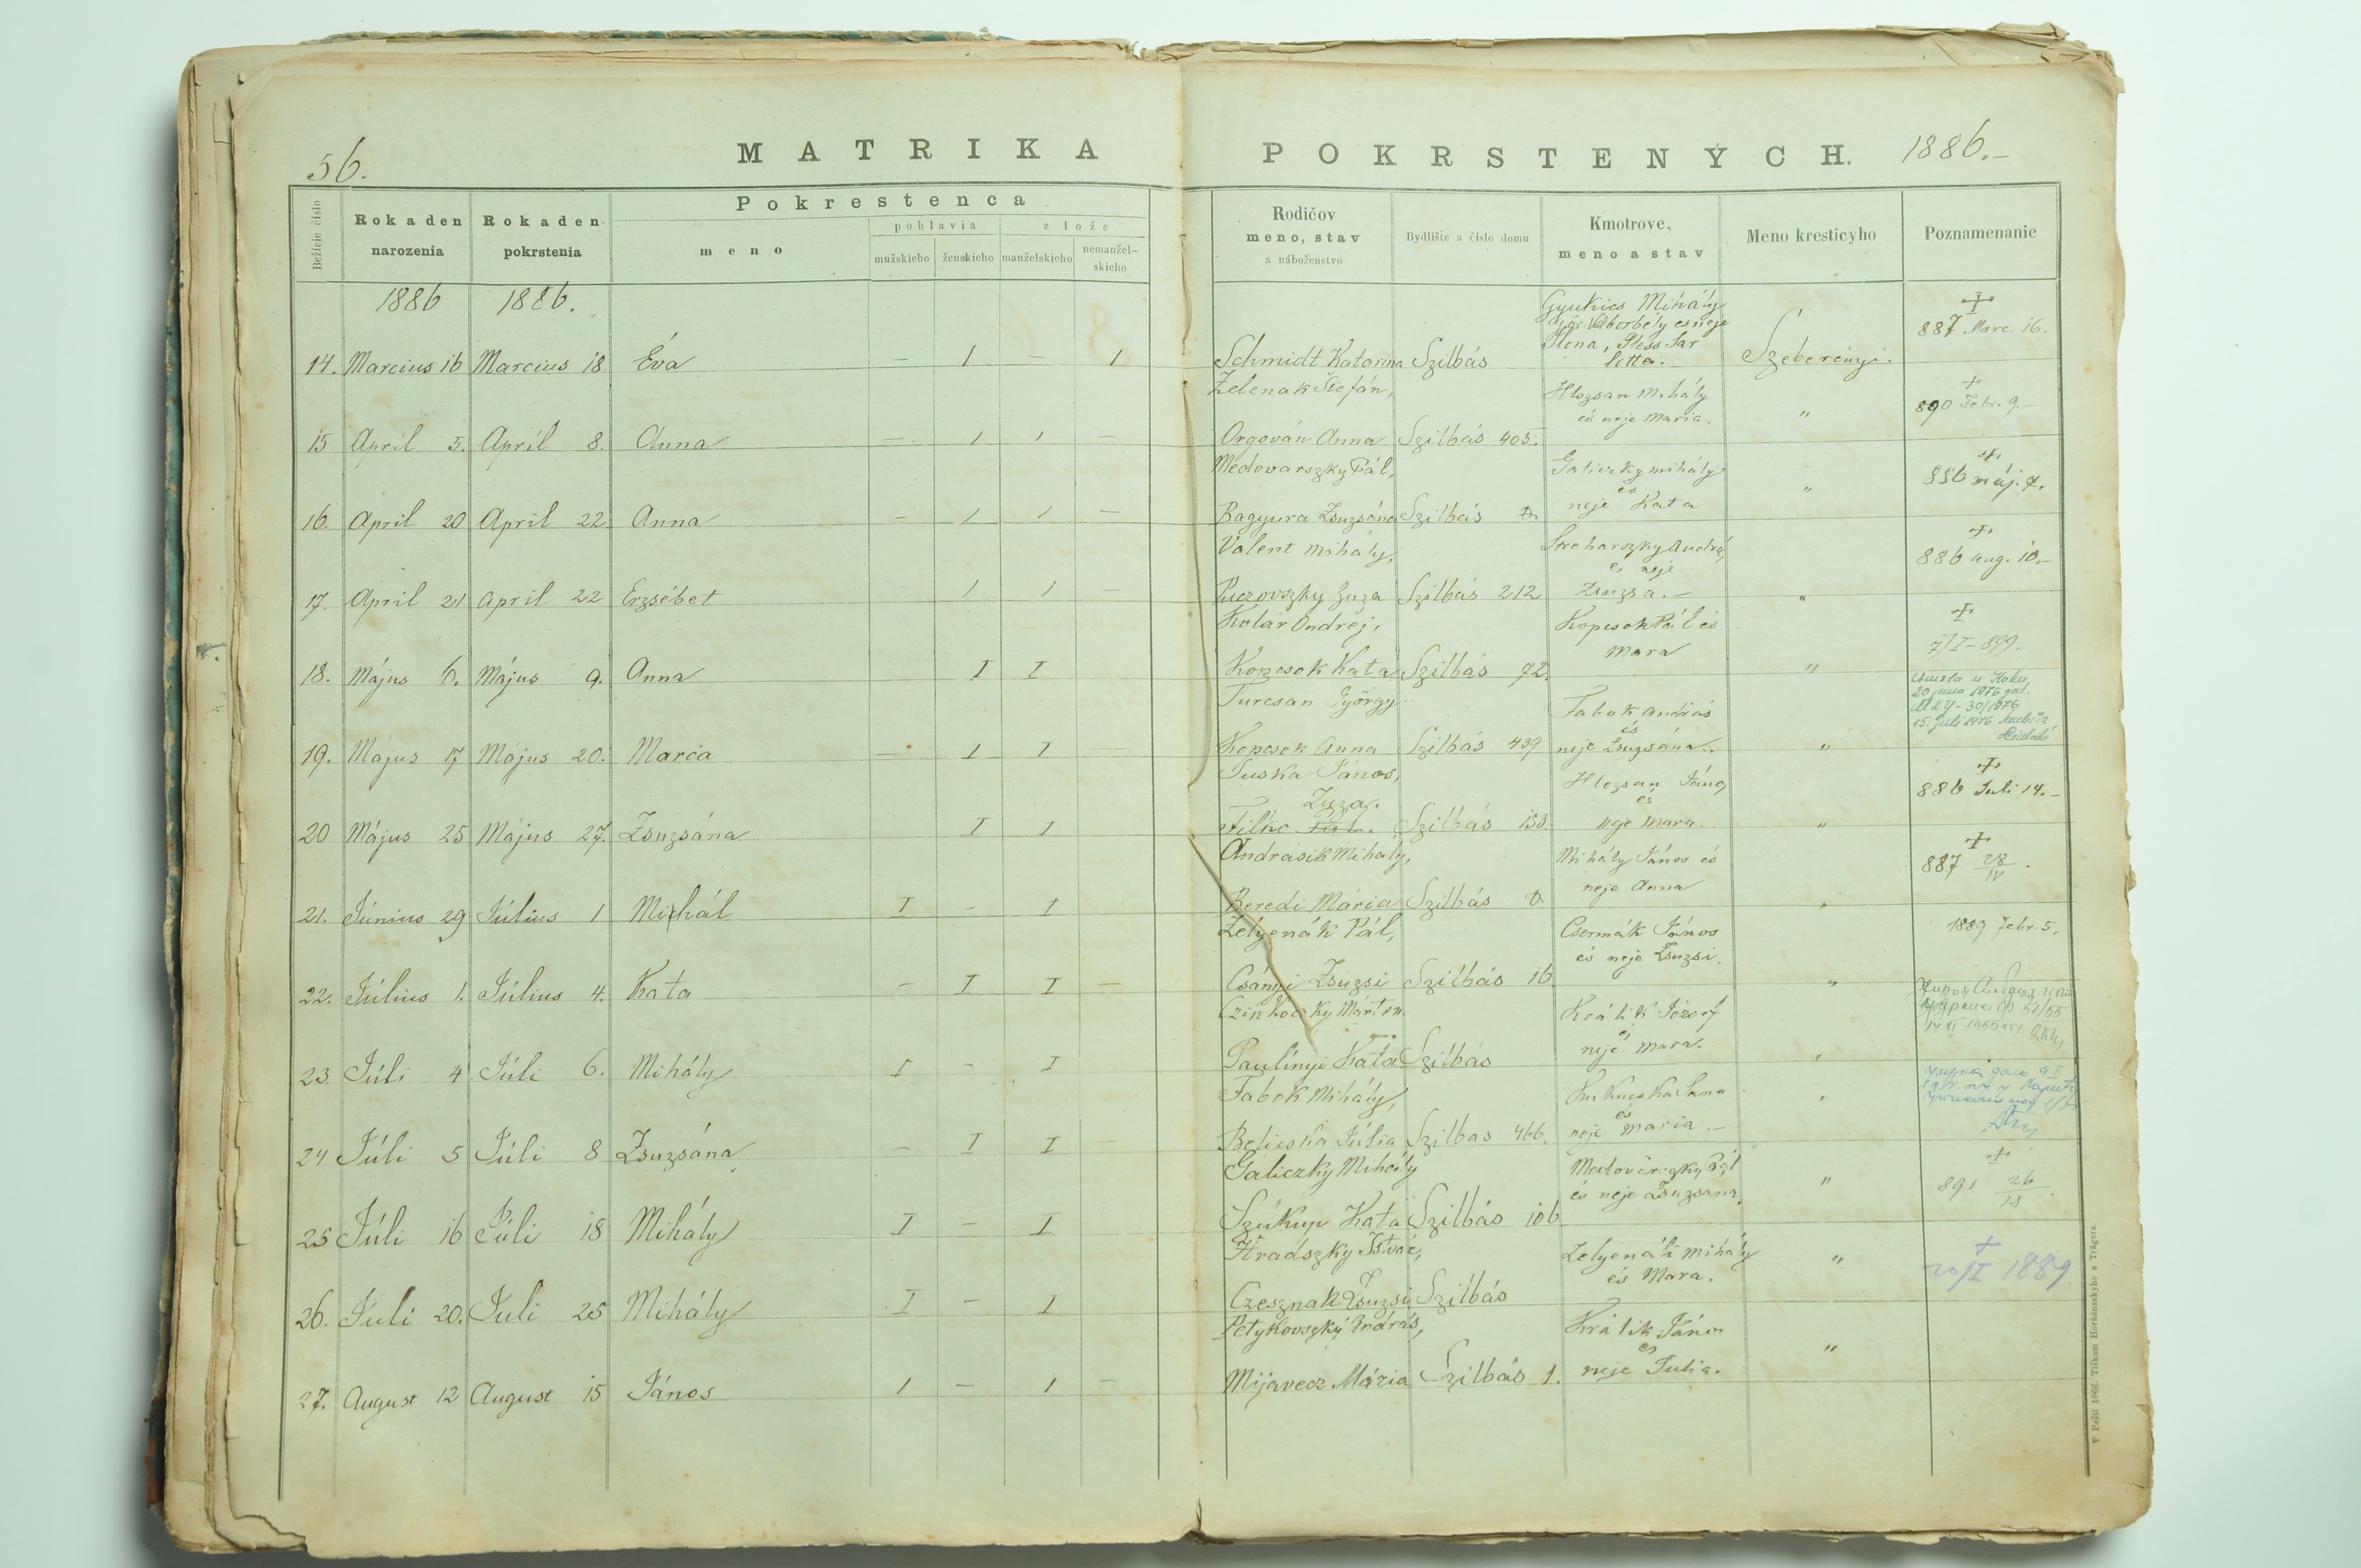 56.
MATRIKA POKRSTENÝCH. 1886.–
Bežície číslo
Rok a den narozenia
Rok a den pokrstenia
Pokrestenca
meno
pohlavia
z lože
mužskieho
ženskieho
manželskieho
nemanžel-
skieho
Rodičov
meno, stav
a náboženstvo
Bydlište a číslo domu
Kmotrove,
meno a stav
Meno kresticyho
Poznamenanie
1886 1886.
Gyukics Mihály
Ilona, Pless Sar
letta.
887 Marc. 16.
14. Marcius 16 Marcius 18 Éva – 1 – 1 Schmidt Katarina Szilbás Szeberényi.
Zelenak Štefán, Hlozsan Mihály
és neje Maria. 890 Febr. 9.–
15 April 5. April 8. Anna – 1 1 – Orgován Anna Szilbás 405. "
Medovarszky Pál, Galiczky Mihály
és
neje Kata 886 máj. 7.
16. April 20 April 22 Anna – 1 1 – Bagyura Zsuzsána Szilbás "
Valent Mihály,
és neje
Zsuzsa.– 886 aug. 10.–
17. April 21 April 22 Erzsébet 1 1 Puczovszky Zuza Szilbás 212 "
Kolar Ondrej, Kopcsok Pál és
Mara 7/I–899.
18. Május 6. Május 9. Anna I I Kopcsok Kata Szilbás 72. "
Turcsan György Fabok András
és
neje Zsuzsána.
20 juna 1976 god.
30/1976
15. juli 1976
19. Május 17 Május 20. Marcia – 1 1 – Kopcsok Anna Szilbás 439 "
Puska János, Hlozsan János
és
neje Mara. 886 Juli 14.–
Zuza.
20 Május 25 Május 27. Zsuzsána I 1 Filko Szilbás 153. "
Andrásik Mihály, Mihály János és
neje Anna 887 28/IV.
21. Június 29 Július 1 Michál I – I Beredi Mária Szilbás "
Zelyenák Pál, Csermák János
és neje Zsuzsi. 1889 Febr. 5.
22. Július 1. Július 4. Kata – I I – Csányi Zsuzsi Szilbás 16 "
Czinkoczky Márton Králik József
és
neje Mara.
23. Júli 4 Júli 6. Mihály I – I Paulínyi Kata Szilbás "
Fabok Mihály, Kukucska Jana
és
neje Maria.–
24 Júli 5 Júli 8 Zsuzsána – I I – Belicska Júlia Szilbas 466. "
Galiczky Mihály Medovárszky Pál
és neje Zsuzsana. 891 26
25 Júli 16 Júli 18 Mihály I – I Szukup Kata Szilbás 106 "
Hradszky Zelyenák Mihály
és Mara. 20/I 1889
26. Juli 20. Juli 25 Mihály I – I Czesznak Zsuzsi Szilbás "
Petykovszky András, Králik János
és
neje Julia.
27. August 12 August 15 János 1 – 1 – Mijavecz Mária Szilbás 1. "
V Pešti 1866. Tiskom Hornánszkyho a Trägera.